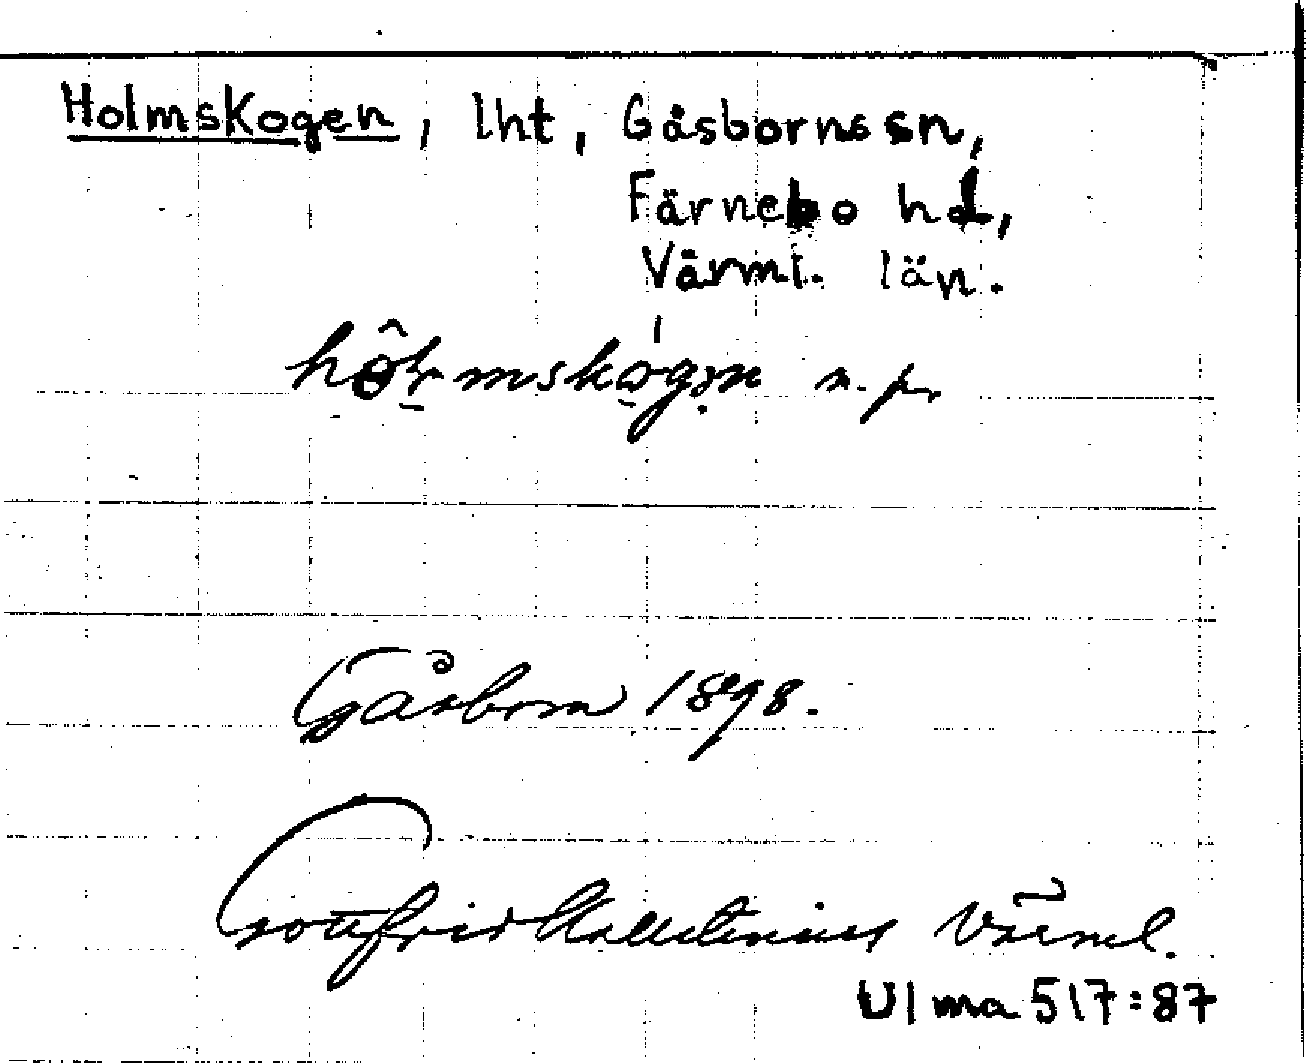 Holmskogen, lht, Gåsborns sn,
Färnebo hd,
Värml. län.
n. pr.
Gåsborn 1898.
Gottfrid Kallstenius Värml.
Ulma 517:87